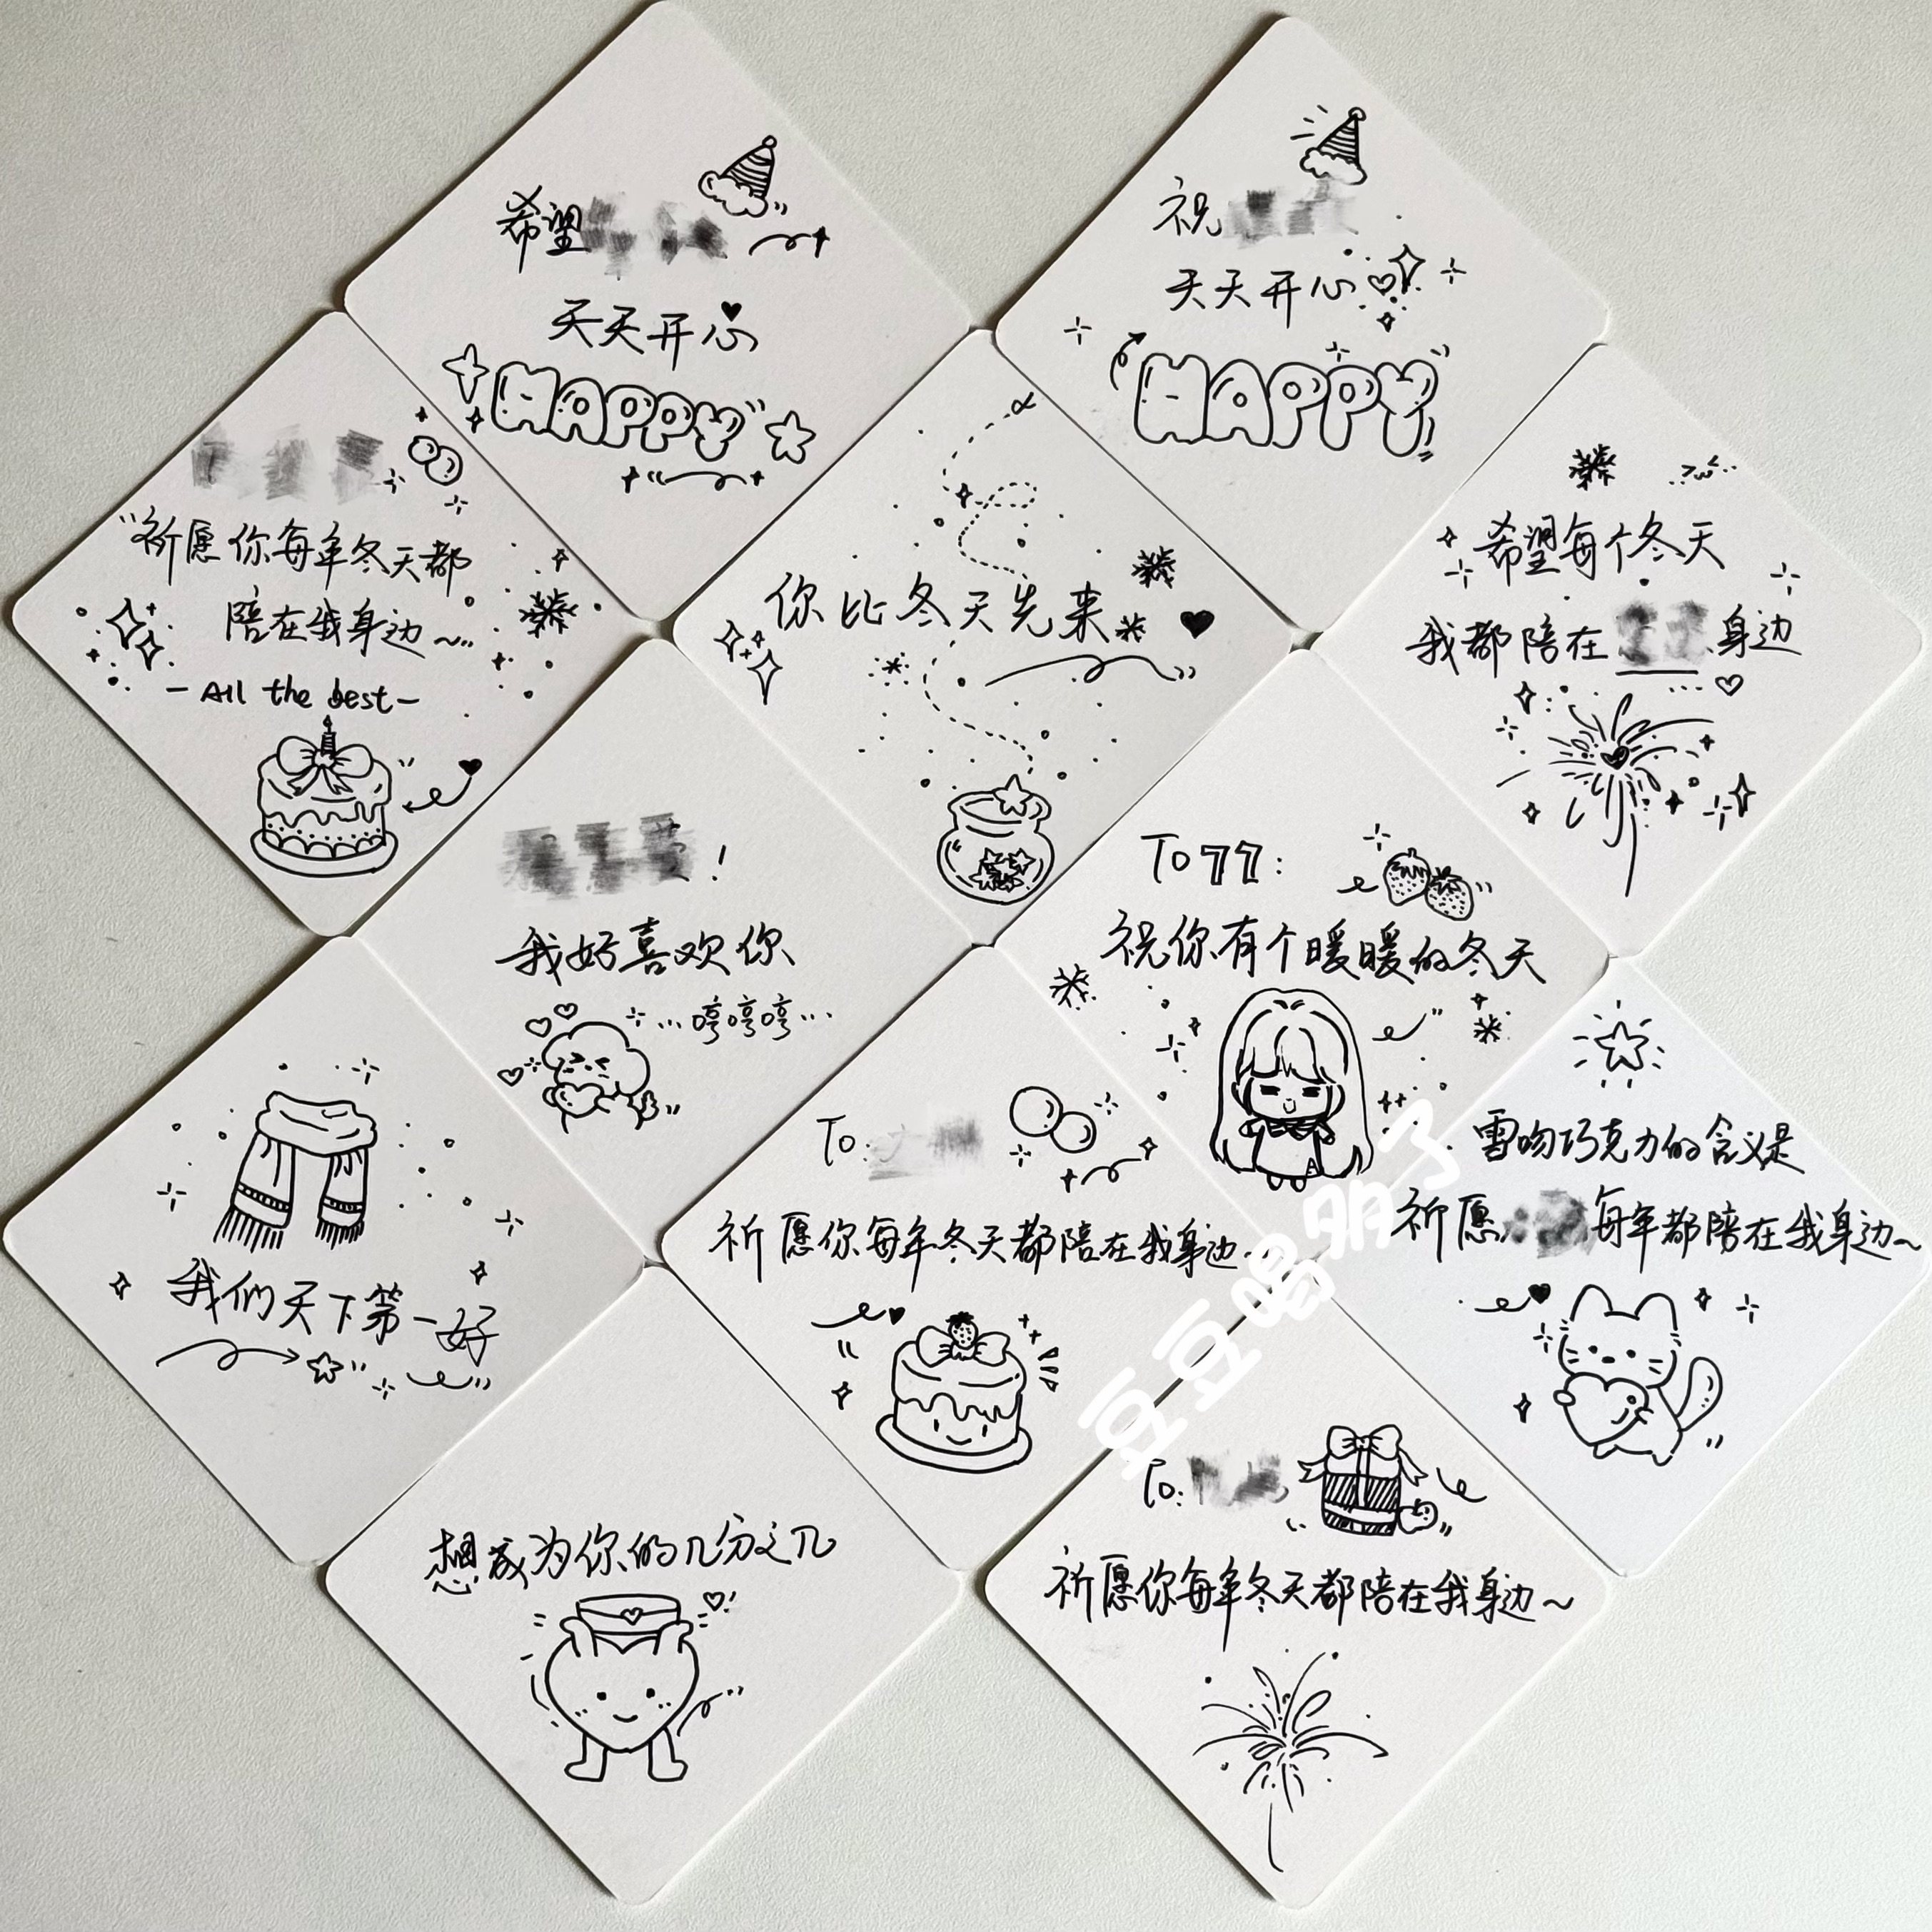 希望
天天开心
HAPPY
祝
天天开心
HAPPY
祈愿你每年冬天都
陪在我身边~...
- All the best -
你比冬天先来
希望每个冬天
我都陪在 身边
!
我好喜欢你
...哼哼哼...
To 77:
祝你有个暖暖的冬天
我们天下第一好
To:
祈愿你每年冬天都陪在我身边
雪吻巧克力的含义是
祈愿 每年都陪在我身边~
想成为你的几分之几
To:
祈愿你每年冬天都陪在我身边~
豆豆喝多了